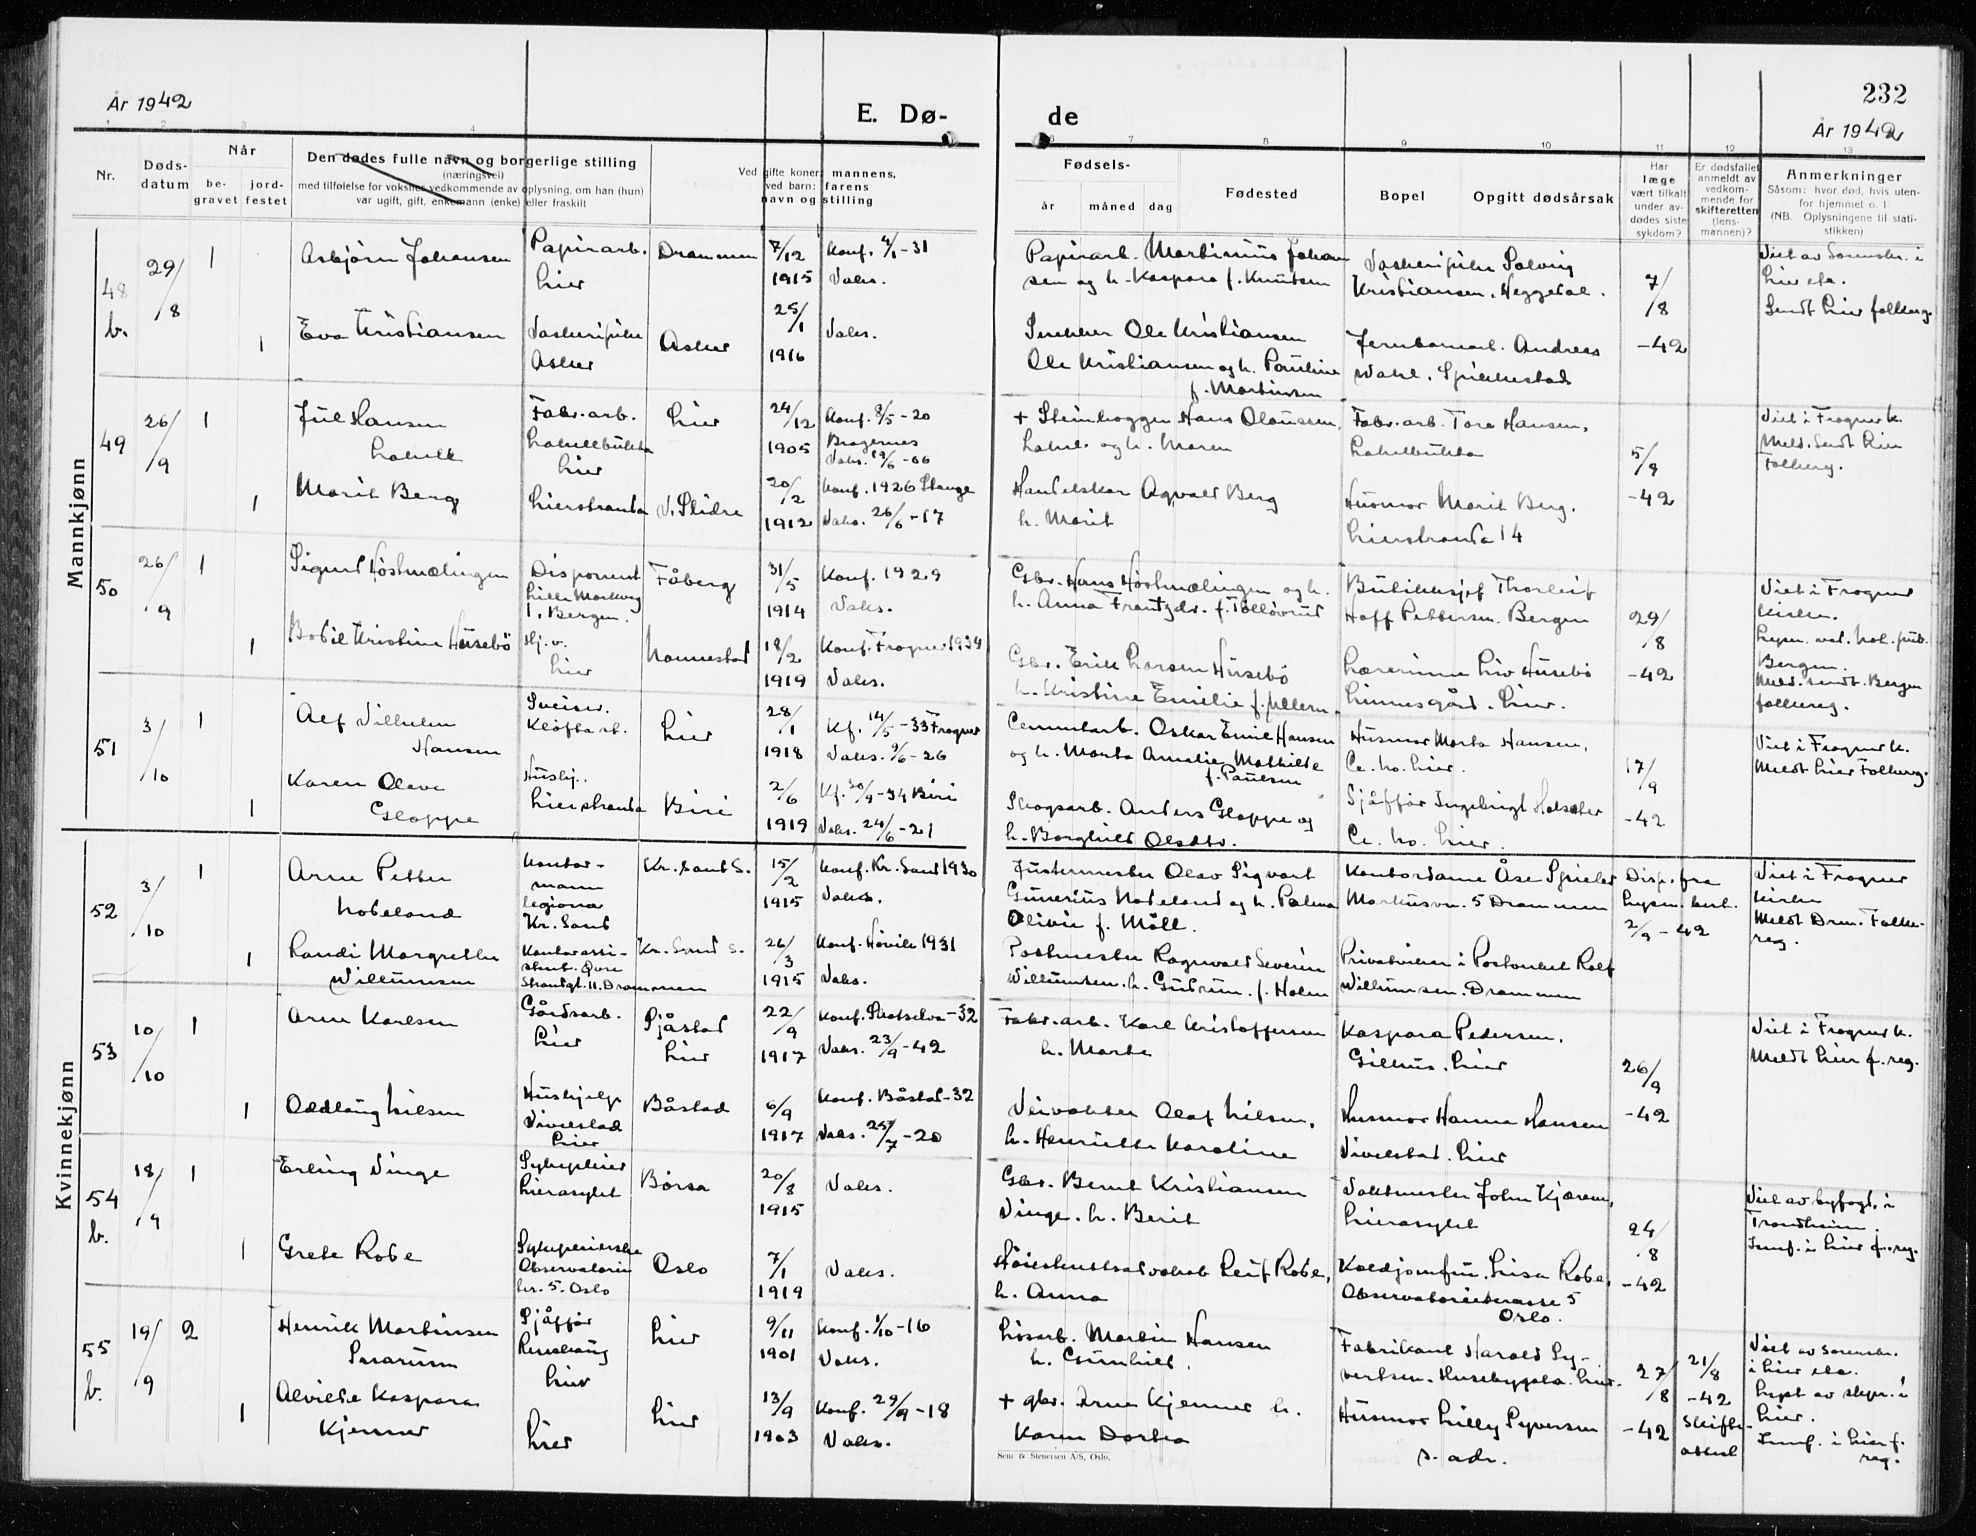 År 1942
E. Dø-
de
232
År 1942
1 2 3 4 5 6 7 8 9 10 11 12 13
Nr.
Døds-
datum
Når
be-
gravet
jord-
festet
Den dødes fulle navn og borgerlige stilling
(næringsvei)
med tilføielse for voksnes vedkommende av oplysning, om han (hun)
var ugift, gift, enkemann (enke) eller fraskilt
Ved gifte koner: mannens,
ved barn: farens
navn og stilling
Fødsels-
år måned dag
Fødested
Bopel
Opgitt dødsårsak
Har
læge
vært tilkalt
under av-
dødes siste
sykdom?
Er dødsfallet
anmeldt av
vedkom-
mende for
skifteretten
(lens-
mannen)?
Anmerkninger
Såsom: hvor død, hvis uten-
for hjemmet o. l.
(NB. Oplysningene til stati-
stikken)
Mannkjønn
Kvinnekjønn
48
b.
29/8
1
Asbjørn Johansen
Papirarb.
Lier
Drammen
7/12
1915
Konf. 4/1-31
Vaks.
Papirarb. Martinius Johan
sen og h. Kaspara f. Knutsen
Vaskeripike Solveig
Kristiansen, Heggedal.
7/8
-42
Viet av Sorenskr. i
Lier etc.
Sendt Lier folkereg.
1
Eva Kristiansen
Vaskeripike
Asker
Asker
25/1
1916
Vaks.
Snekker Ole Kristiansen
Ole Kristiansen og h. Pauline
f. Martinsen
Jernbanearb. Andreas
Wahl. Spikkestad
49
26/9
1
Juel Hansen
Lahell
Fabr. arb.
Lahellbukta
Lier
Lier
24/12
1905
Konf. 8/5-20
Bragernes
Vaks. 19/6-06
+ Steinhogger Hans Olaussen,
Lahel. og h. Maren
Fabr. arb. Tore Hansen,
Lahelbukta
5/9
-42
Viet i Frogner k.
Meld. sendt Lier
Folkereg.
1
Marit Berg
Lierstranda
V. Slidre
20/2
1912
Konf. 1926 Stange
Vaks. 26/6-17
Handelskar Agvald Berg
h. Marit
Husmor Marit Berg.
Lierstranda 14
50
26/9
1
Sigurd Höstmælingen
Disponent
Lille Markveg
1, Bergen.
Fåberg
31/5
1914
Konf. 1929
Vaks.
Gbr. Hans Höstmælingen og h.
h. Anna Frantzdr. f. Tollövrud
Butikksjef Thorleif
Hoff Pettersen. Bergen
29/8
-42
Viet i Frogner
kirke.
Lysn. ved. Not. pub.
Bergen.
Meld. sendt. Bergen
folkereg.
1
Bodil Kristine Husebö
Hj. v.
Lier
Nannestad
18/2
1919
Konf. Frogner 1934
Vaks.
Gbr. Erik Larsen Husebö
h. Kristine Emilie f. Ullern
Lærerinne Liv Husebö
Linnesgård. Lier.
51
3/10
1
Alf Vilhelm
Hansen
Sveiser.
Kloftarb.
Lier
28/1
1918
Kf. 14/5-33 Frogner
Vaks. 9/6-26
Cementarb. Oskar Emil Hansen
og h. Marta Amalie Mathilde
f. Paulsen
Husmor Marta Hansen,
Ce. No. Lier.
17/9
-42
Viet i Frogner k.
Meldt Lier Folkereg.
1
Karen Olave
Gloppe
Hushj.
Lierstranda
Biri
2/6
1919
Kf. 30/9-34 Biri
Vaks. 24/6-21
Skogsarb. Anders Gloppe og
h. Borghild Olsdtr.
Sjåffør Ingebrigt Holseter
Ce. No. Lier.
52
3/10
1
Arne Petter
Nodeland
Kontor-
mann
legionær
Kr. Sand
Kr. sand S.
15/2
1915
Konf. Kr. Sand 1930
Vaks.
Justermester Olav Sigvart
Gunerius Nodeland og h. Palma
Olivie f. Möll.
Kontordame Åse Spieler
Markusvn. 5 Drammen
Disp. fra
Lysn. bort.
2/9-42
Viet i Frogner
kirke
Meldt Drm. Folke-
reg.
1
Randi Margrethe
Willumsen
Kontorassi-
stent. Øvre
Strandgt. 11. Drammen
Kr. Sand S.
26/3
1915
Konf. Høvik 1931
Vaks.
Postmester Ragnvald Severin
Willumsen. h. Gudrun. f. Holm
Privatviker i Postvesenet Rolf
Willumsen. Drammen
53
10/10
1
Arne Karlsen
Gårdsarb.
Lier
Sjåstad
Lier
22/9
1917
Konf. Skotselv-32
Vaks. 23/9-42
Fabr. arb. Karl Kristoffersen
h. Marte
Kaspara Pedersen.
Gilhus. Lier
26/9
-42
Viet i Frogner k.
Meldt Lier f. reg.
1
Oddlaug Nilsen
Hushjelp
Vivelstad
Lier
Båstad
6/9
1917
Konf. Båstad-32
Vaks. 25/7-20
Veivokter Olaf Nilsen,
h. Henriette Karoline
Husmor Hanna Hansen
Vivelstad. Lier
54
b.
18/9
1
Erling Vinge
Sykepleier
Lierasylet
Börsa
20/8
1915
Vaks.
Gbr. Bernt Kristiansen
Vinge. h. Berit
Vaktmester John Kjærem,
Lierasylet
24/8
-42
Viet av byfogd. i
Trondheim.
Innf. i Lier f. reg.
1
Grete Robe
Sykepleierske
Observatorie
ter. 5. Oslo
Oslo
7/1
1919
Vaks.
Høiesterettsadvokat Leif Robe,
h. Anna
Koldjomfru. Lisa Robe,
Observatorieterasse 5
Oslo.
55
b.
19/9
2
Henrik Martinsen
Sjåffør
Lier
Lier
9/11
1901
Konf. 1/10-16
Vaks.
Løsarb. Martin Hansen
h. Gunhild.
Fabrikant Harald Sy-
vertsen. Husebygata. Lier.
27/8
-42
21/8
-42
Skifte-
attest
Viet av sorenskr.
i Lier etc.
Lyst av skpr. i
Lier.
Innf. i Lier f.
reg.
1
Alvilde Kaspara
Kjenner
Lier
Lier
13/9
1903
Konf. 29/9-18
Vaks.
+ gbr. Arne Kjenner h.
Karen Dortea
Husmor Lilly Syversen
s. adr.
Sem & Stenersen A/S, Oslo.